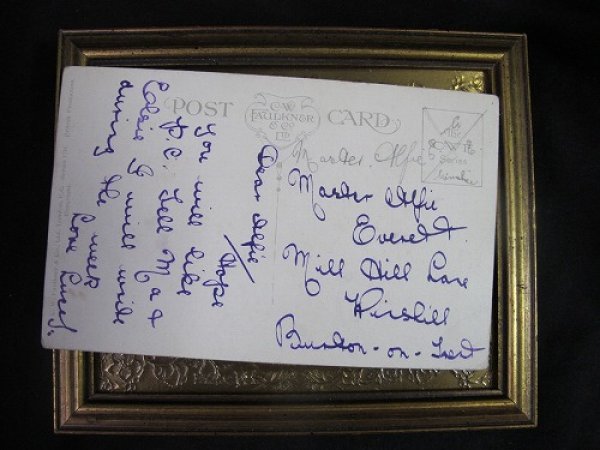 POST CARD
C.W. FAULKNER & CO. LTD.
Dear Alfie
Hope
you will like
P.C. Tell Ma &
I will write
during the week
Love
Master Alfie
Master Alfie
Everett
Mill Hill Lane
Winshill
Burton-on-Trent
Series